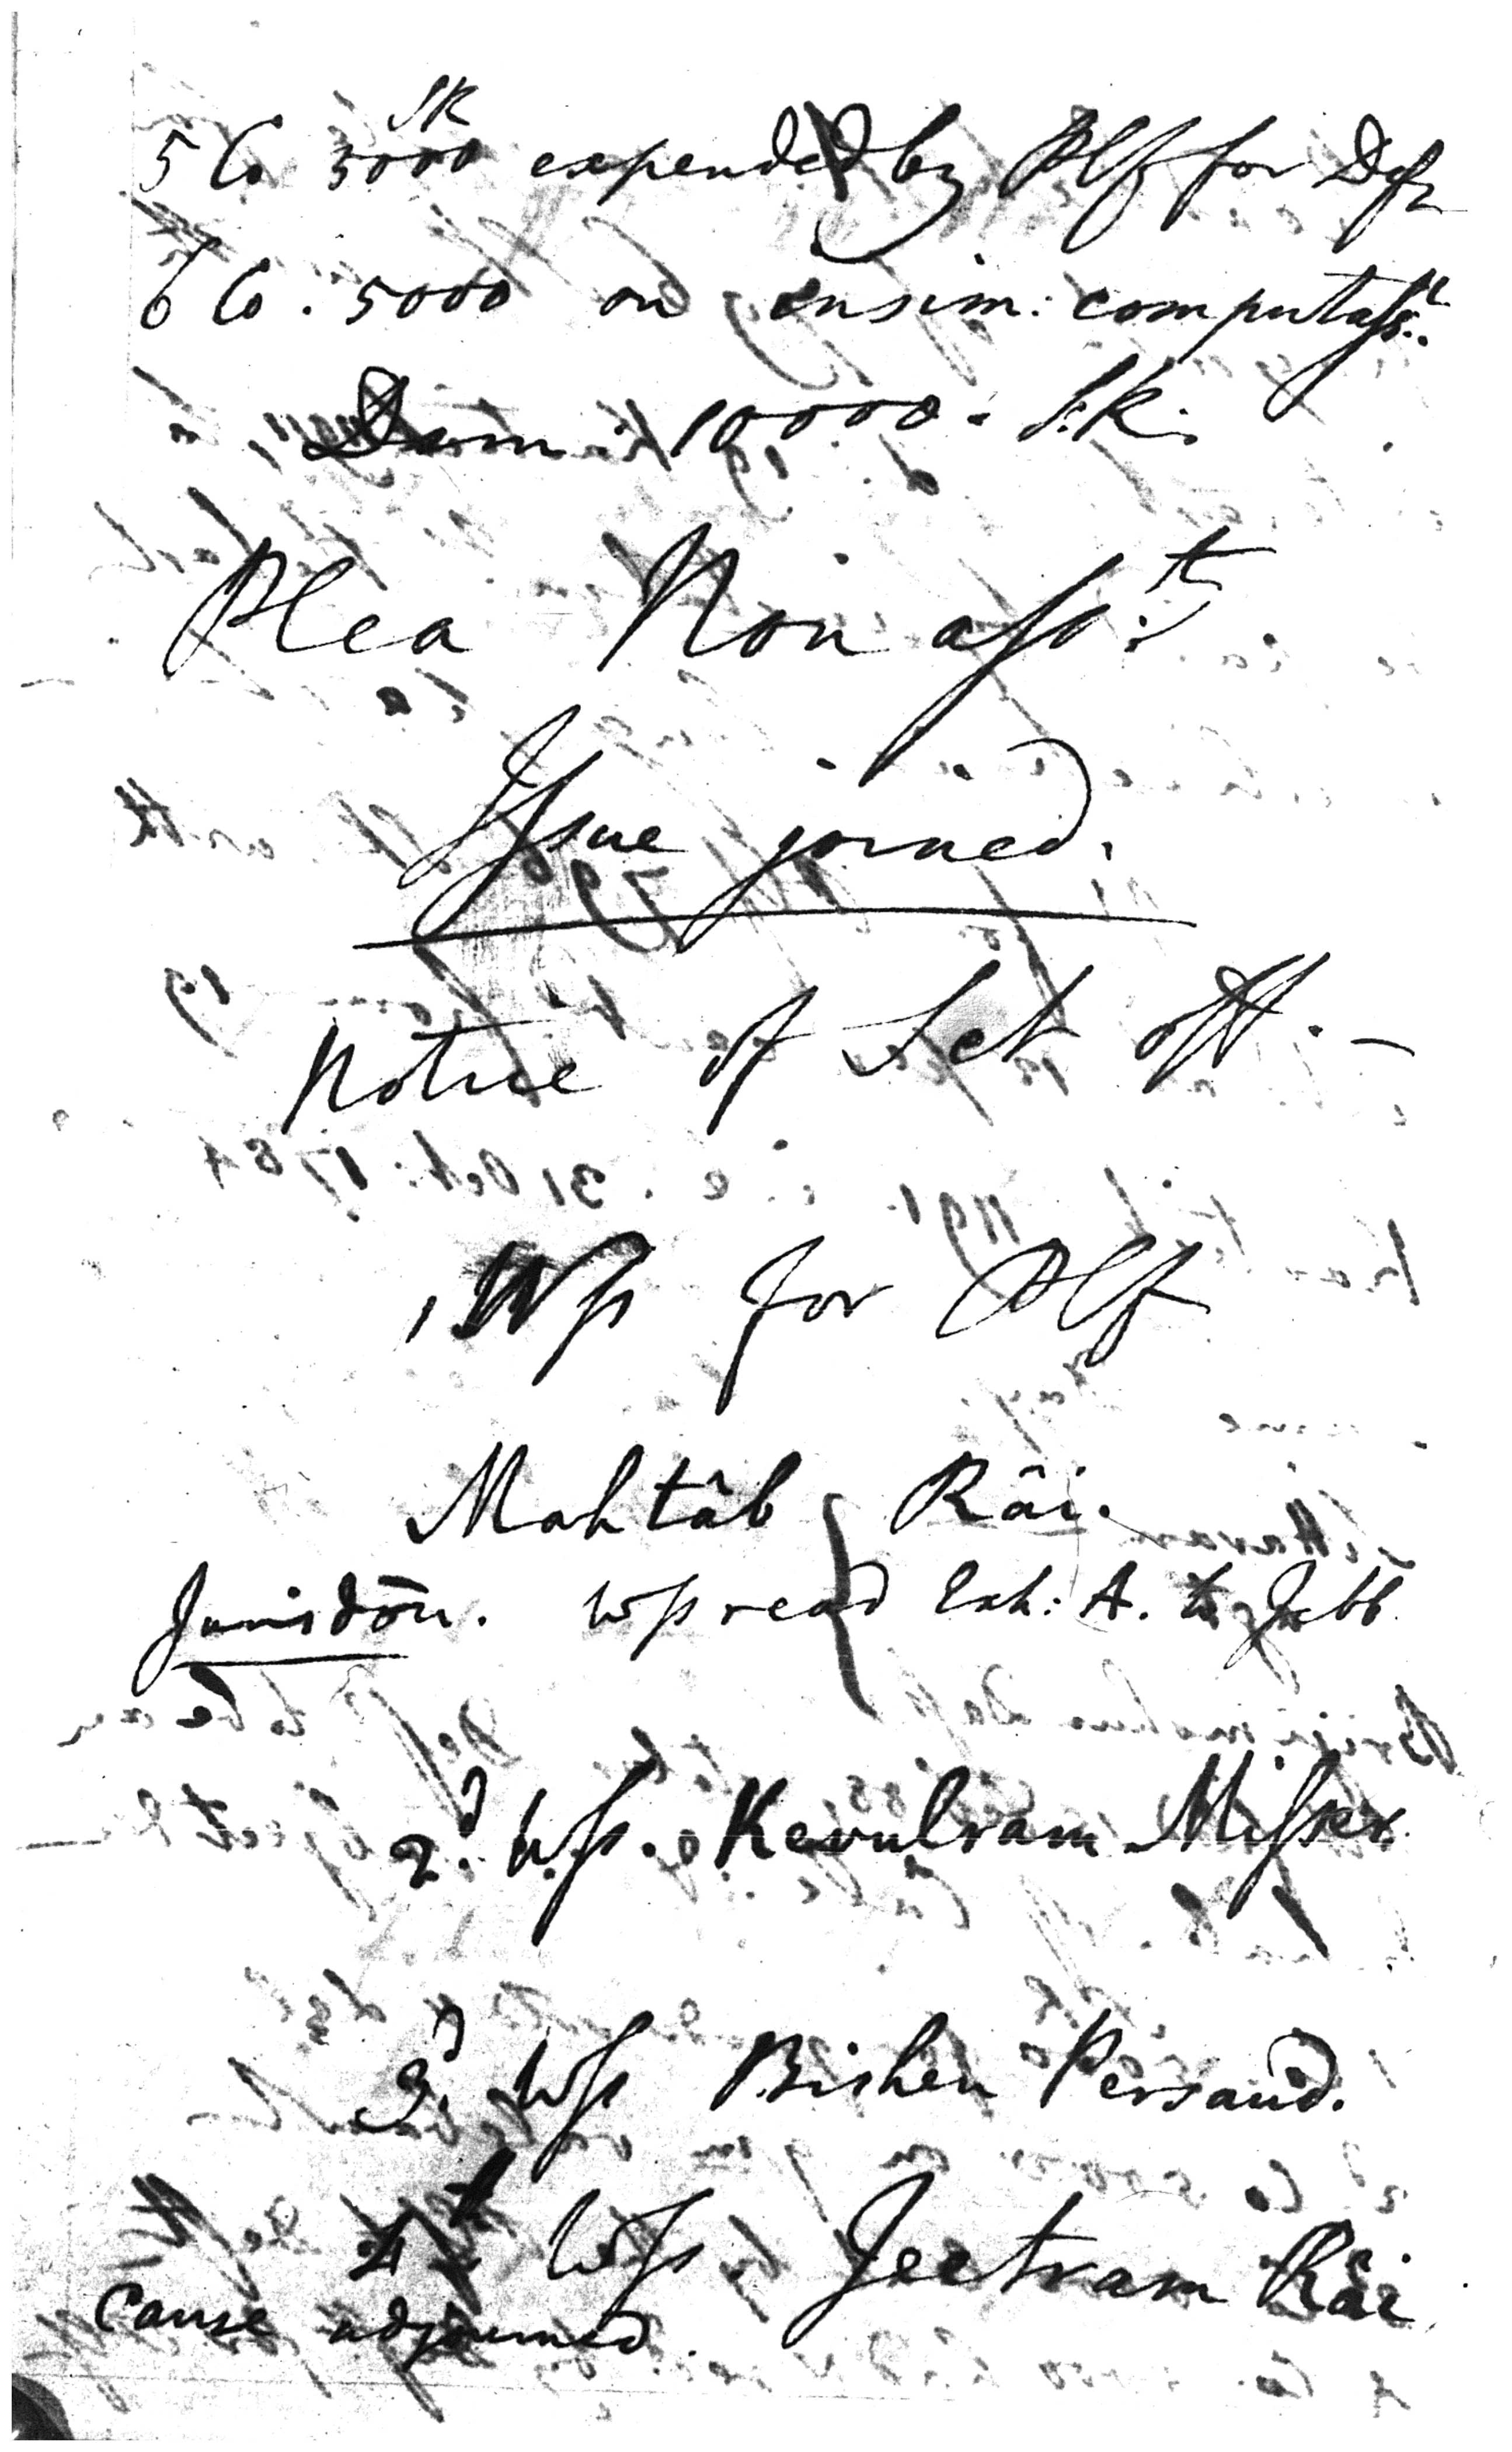 SR
5 Co 5000 expended by Plf for Dft
6 Co. 5000 on insim: computass:t
Dam 10000. S.R.
Plea Non asst:
Issue joined.
Notice of Set off. —
1 Wss for Plf
Mahtâb Râi.
Jurisdōn. Wss read Exh: A. to Jebb
2.d Wss. Kevulram Misser.
3.d Wss Bishen Persaud.
4th Wss. Jeetram Râi
Cause adjourned.